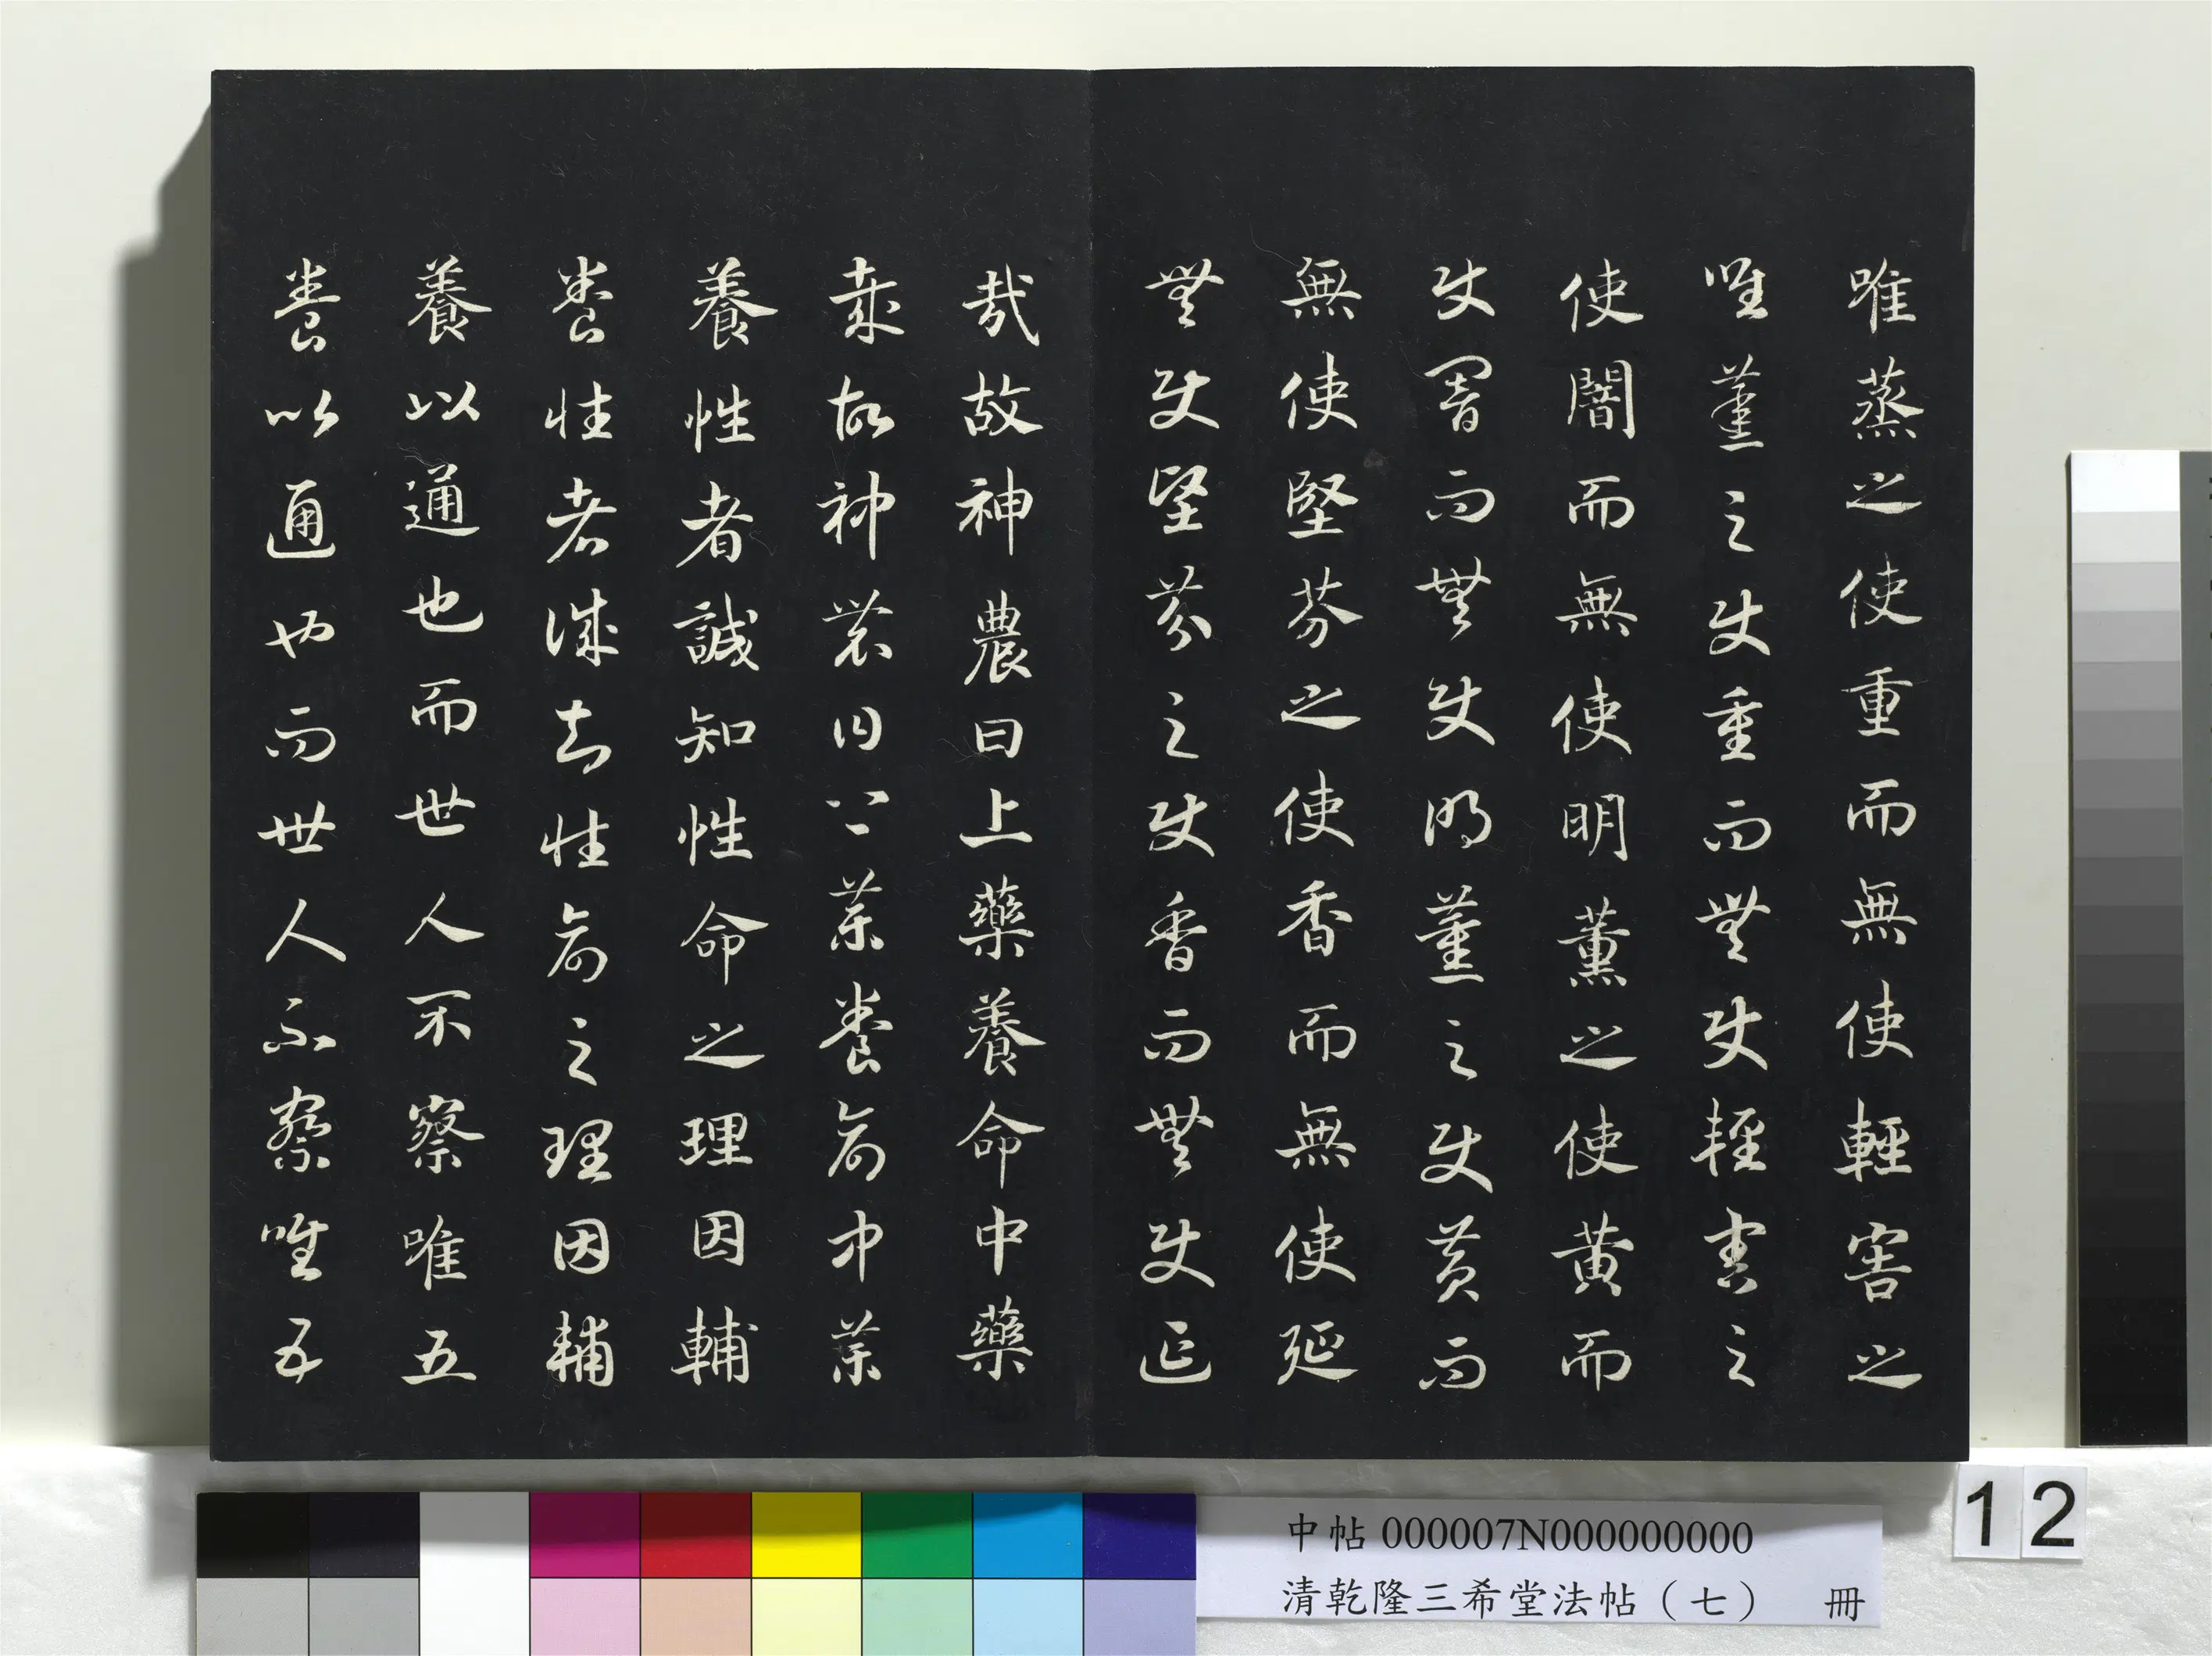 唯蒸之使重而無使輕害之
唯蒸之使重而無使輕害之
使闇而無使明薰之使黃而
使闇而無使明薰之使黃而
無使堅芬之使香而無使延
無使堅芬之使香而無使延
哉故神農曰上藥養命中藥
哉故神農曰上藥養命中藥
養性者誠知性命之理因輔
養性者誠知性命之理因輔
養以通也而世人不察唯五
養以通也而世人不察唯五
中帖 000007N000000000
清乾隆三希堂法帖（七） 冊
12